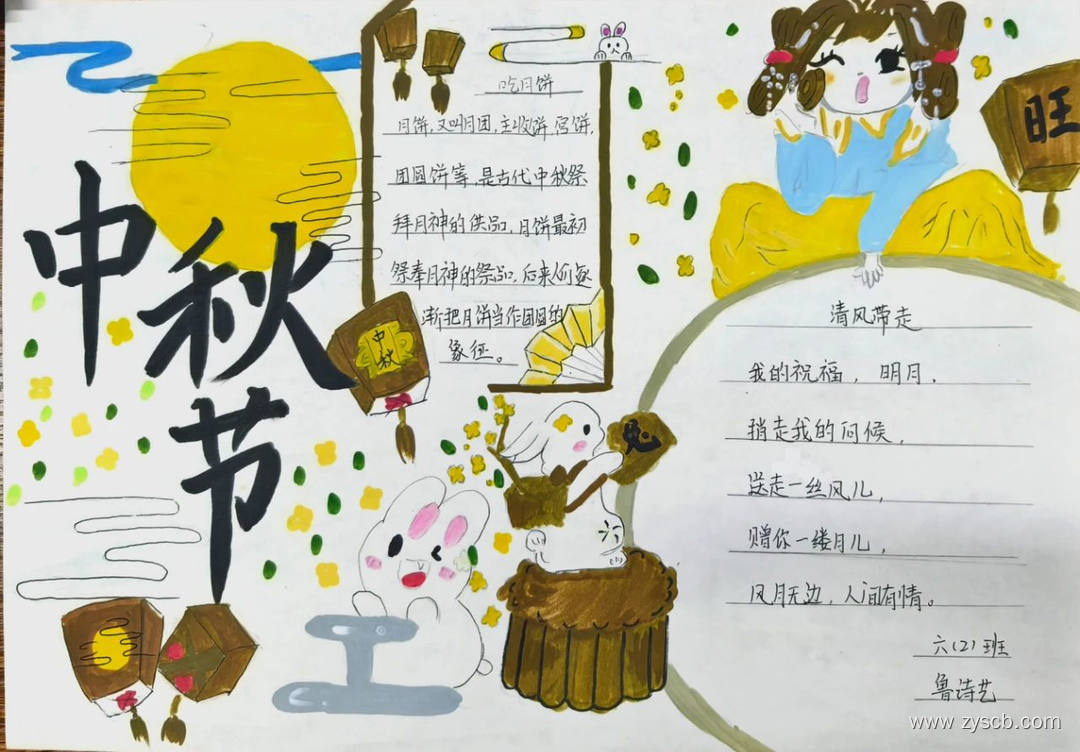 中秋节
吃月饼
月饼,又叫月团,丰收饼,宫饼,
团圆饼等,是古代中秋祭
拜月神的供品,月饼最初
祭奉月神的祭品,后来们逐
渐把月饼当作团圆的
象征。
中秋
兔
旺
清风带走
我的祝福,明月,
捎走我的问候,
送走一丝风儿,
赠你一缕月儿,
风月无边,人间有情。
六(2)班
鲁诗艺
www.zyscb.com